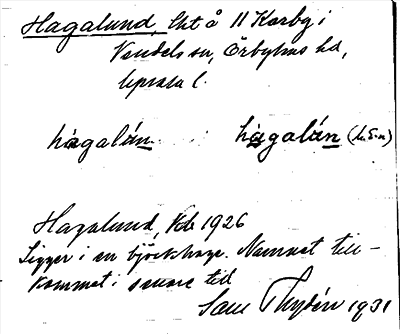 Hagalund, lht å 11 Karby i
Vendels sn, Örbyhus hd,
Uppsala l.
hagalún hagalún (h.S-n)
Hagalund, Kb 1926
Ligger i en björkhage. Namnet till-
kommet i senare tid
Sam Thydén 1931